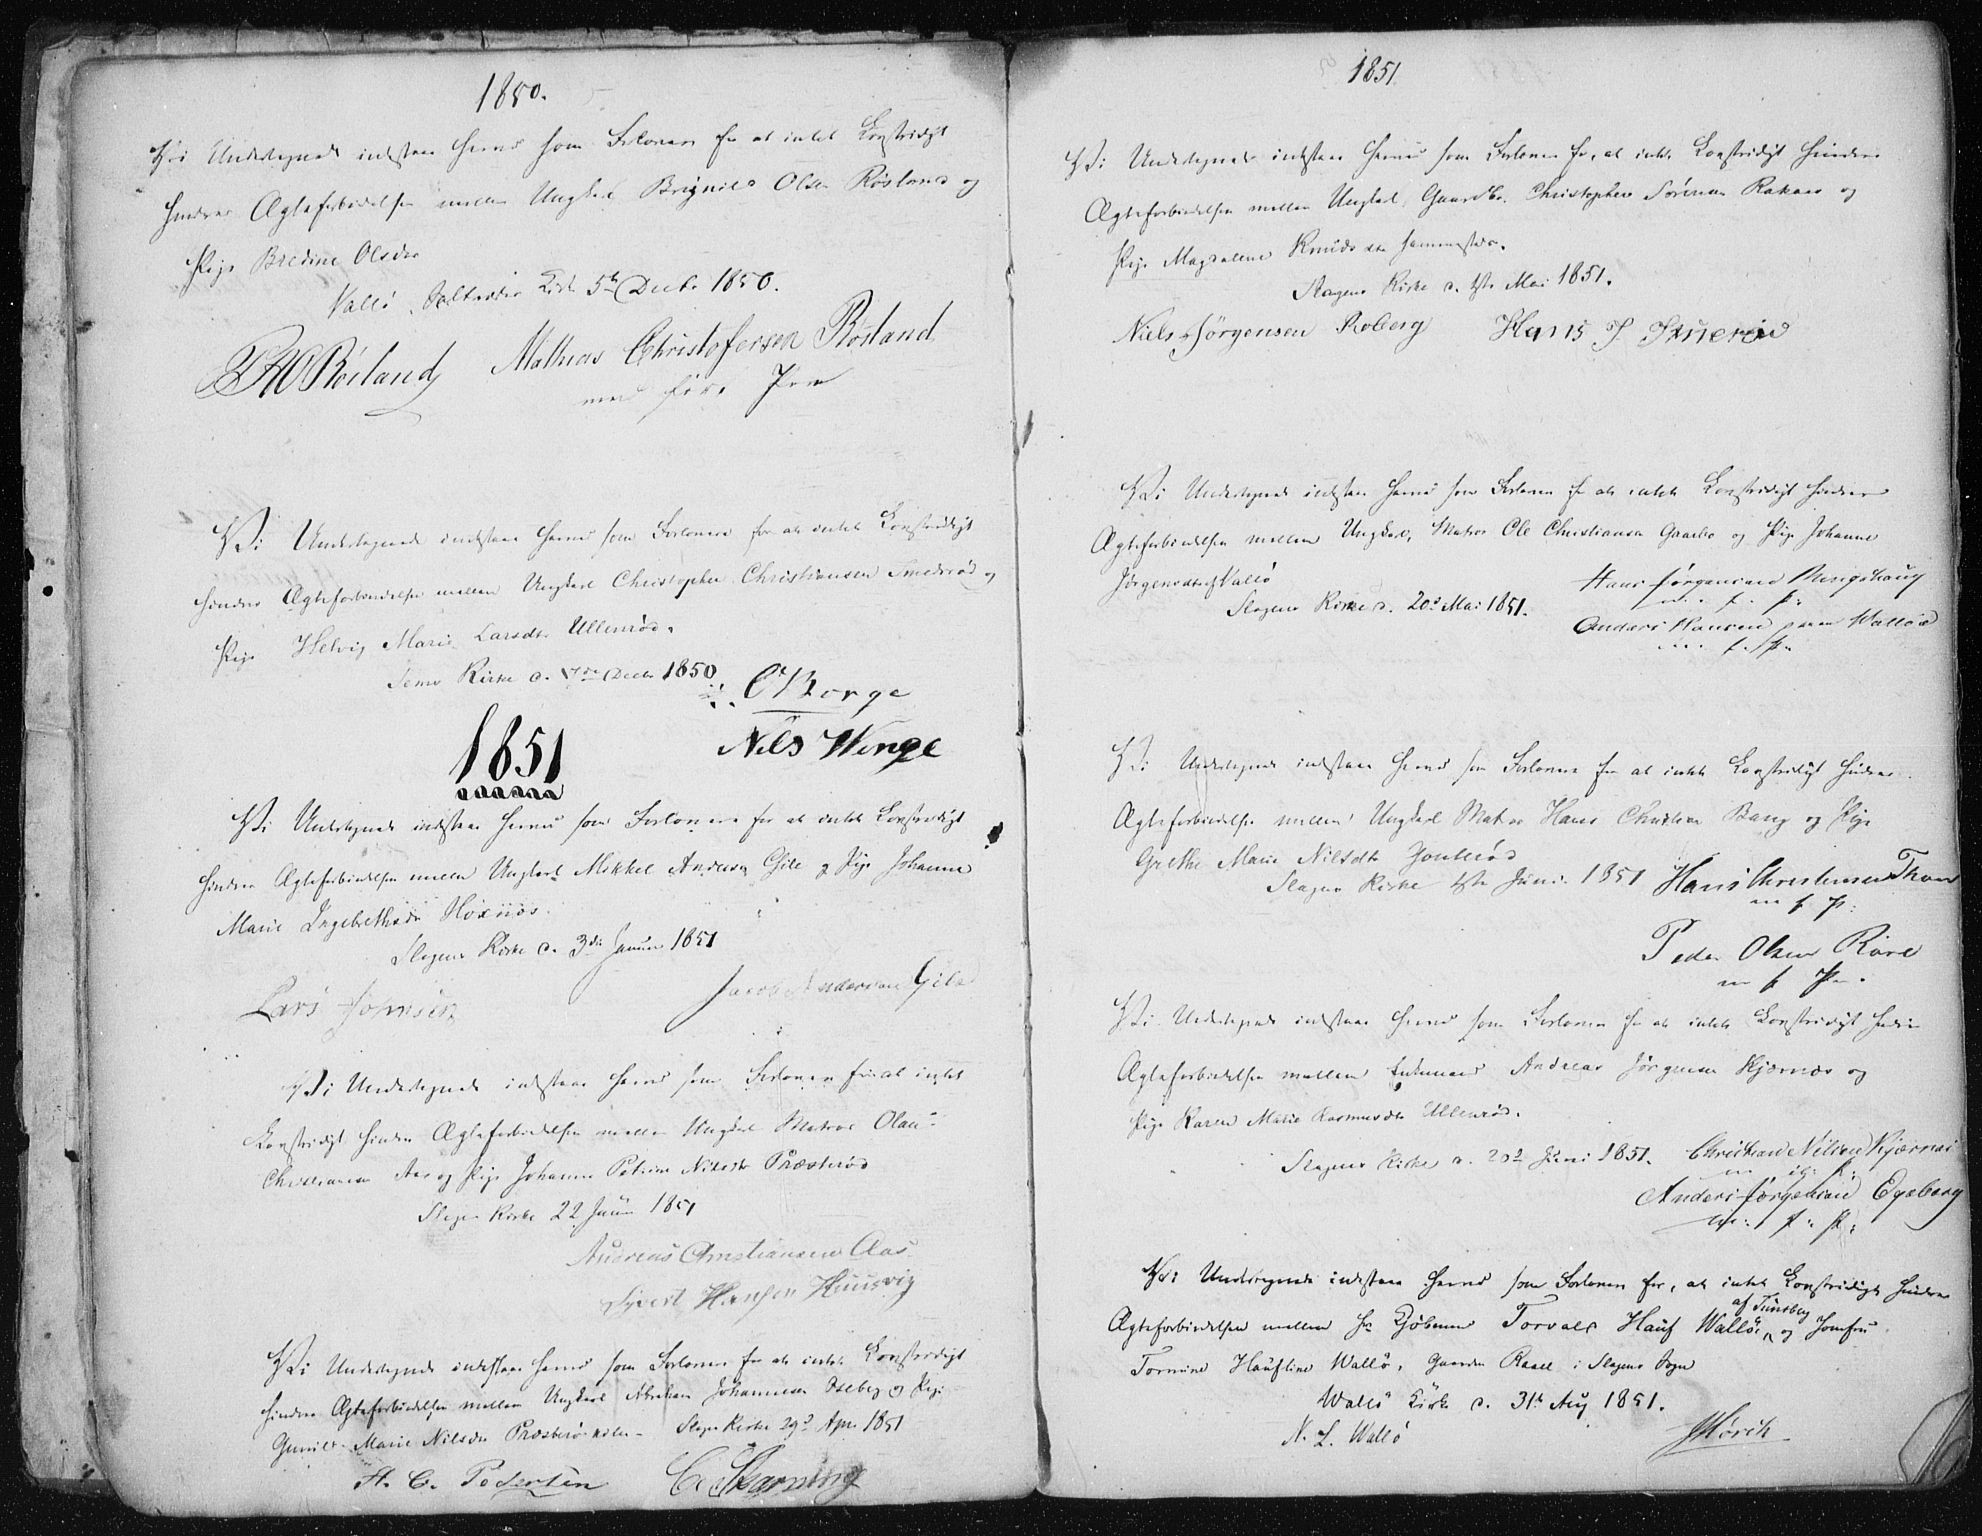 1850.
Vi Undertegnede indestaae herved som Forlovere for at intet Lovstridigt
hindrer Ægteforbindelsen mellem Ungkarl Brynild Olsen Røsland og
Pige Bredine Olsdr
Vallö Saltværks Kirke 5te Decbr 1850.
Røsland Mathias Christofersen Røsland
med ført Pen
Vi Undertegnede indestaae herved som Forlovere for at intet Lovstridigt
hindrer Ægteforbindelsen mellem Ungkarl Christopher Christiansen Smedsrød og
Pige Helvig Marie Larsdtr Ullenrød.
Sems Kirke d. Decbr 1850
C Borge
Nils Winge
1851
Vi Undertegnede indestaae herved som Forlovere for at intet Lovstridigt
hindrer Ægteforbindelsen mellem Ungkarl Mikkel Andersen Gile og Pige Johanne
Marie Ingebrethsdr Hoxnæs.
Slagens Kirke d. 3die Januar 1851
Lars Johnsen Jacob Andersen Gile
Vi Undertegnede indestaae herved som Forlovere for at intet
Lovstridigt hindrer Ægteforbindelsen mellem Ungkarl Matros Olaus
Christiansen Aas og Pige Johanne Petrine Nilsdtr Præsterød
Slagens Kirke 22 Januar 1851
Andreas Christiansen Aas
Syvert Hansen Huusvig
Vi Undertegnede indestaae herved som Forlovere for at intet Lovstridigt
hindrer Ægteforbindelsen mellem Ungkarl Abraham Johannesen Oseberg og Pige
Gunild Marie Nilsdtr Præsterød Slagens Kirke 29d Apr. 1851
H. C. Pedersen C. Skarning
1851.
Vi Undertegnede indestaae herved som Forlovere for, at intet Lovstridigt hindrer
Ægteforbindelsen mellem Ungkarl, Gaardbr. Christopher Sörensen Rakaas og
Pige Magdalene Knudsdtr sammesteds.
Slagens Kirke d. 1ste Mai 1851.
Niels Jörgensen Roberg Hans J
Vi Undertegnede indestaae herved som Forlovere for at intet Lovstridigt hindrer
Ægteforbindelsen mellem Ungkarl, Matros Ole Christiansen Gaasbo og Pige Johanne
Jörgensdatter Vallö
Slagens Kirke d. 20d Mai 1851.
Hans Jörgensen Ringshaug
m. f. P.
Anders Hansen Walløe
m. f. P.
Vi Undertegnede indestaae herved som Forlovere for at intet Lovstridigt hindrer
Ægteforbindelsen mellem Ungkarl Matros Hans Christian Bang og Pige
Grethe Marie Nilsdtr
Slagens Kirke 1ste Juni 1851 Hans Christensen
m f P.
Peder Olsen Röre
m f P.
Vi Undertegnede indestaae herved som Forlovere for at intet Lovstridigt hindrer
Ægteforbindelsen mellem Enkemand Andreas Jörgensen Kjærnæs og
Pige Karen Marie Rasmusdtr Ullenrød.
Slagens Kirke d. 20d Juni 1851. Christian Nilsen Kjærnæs
m. f. P.
Anders Jörgensen Egeberg
m. f. P.
Vi Undertegnede indestaae herved som Forlovere for, at intet Lovstridigt hindrer
Ægteforbindelsen mellem Hr Kjöbmand Torvald Hauf Wallöe af Tunsberg og Jomfru
Tomine Haufline Wallö, Gaarden Raael i Slagens Sogn
Wallö Kirke d. 31te Aug 1851.
N. L. Wallö